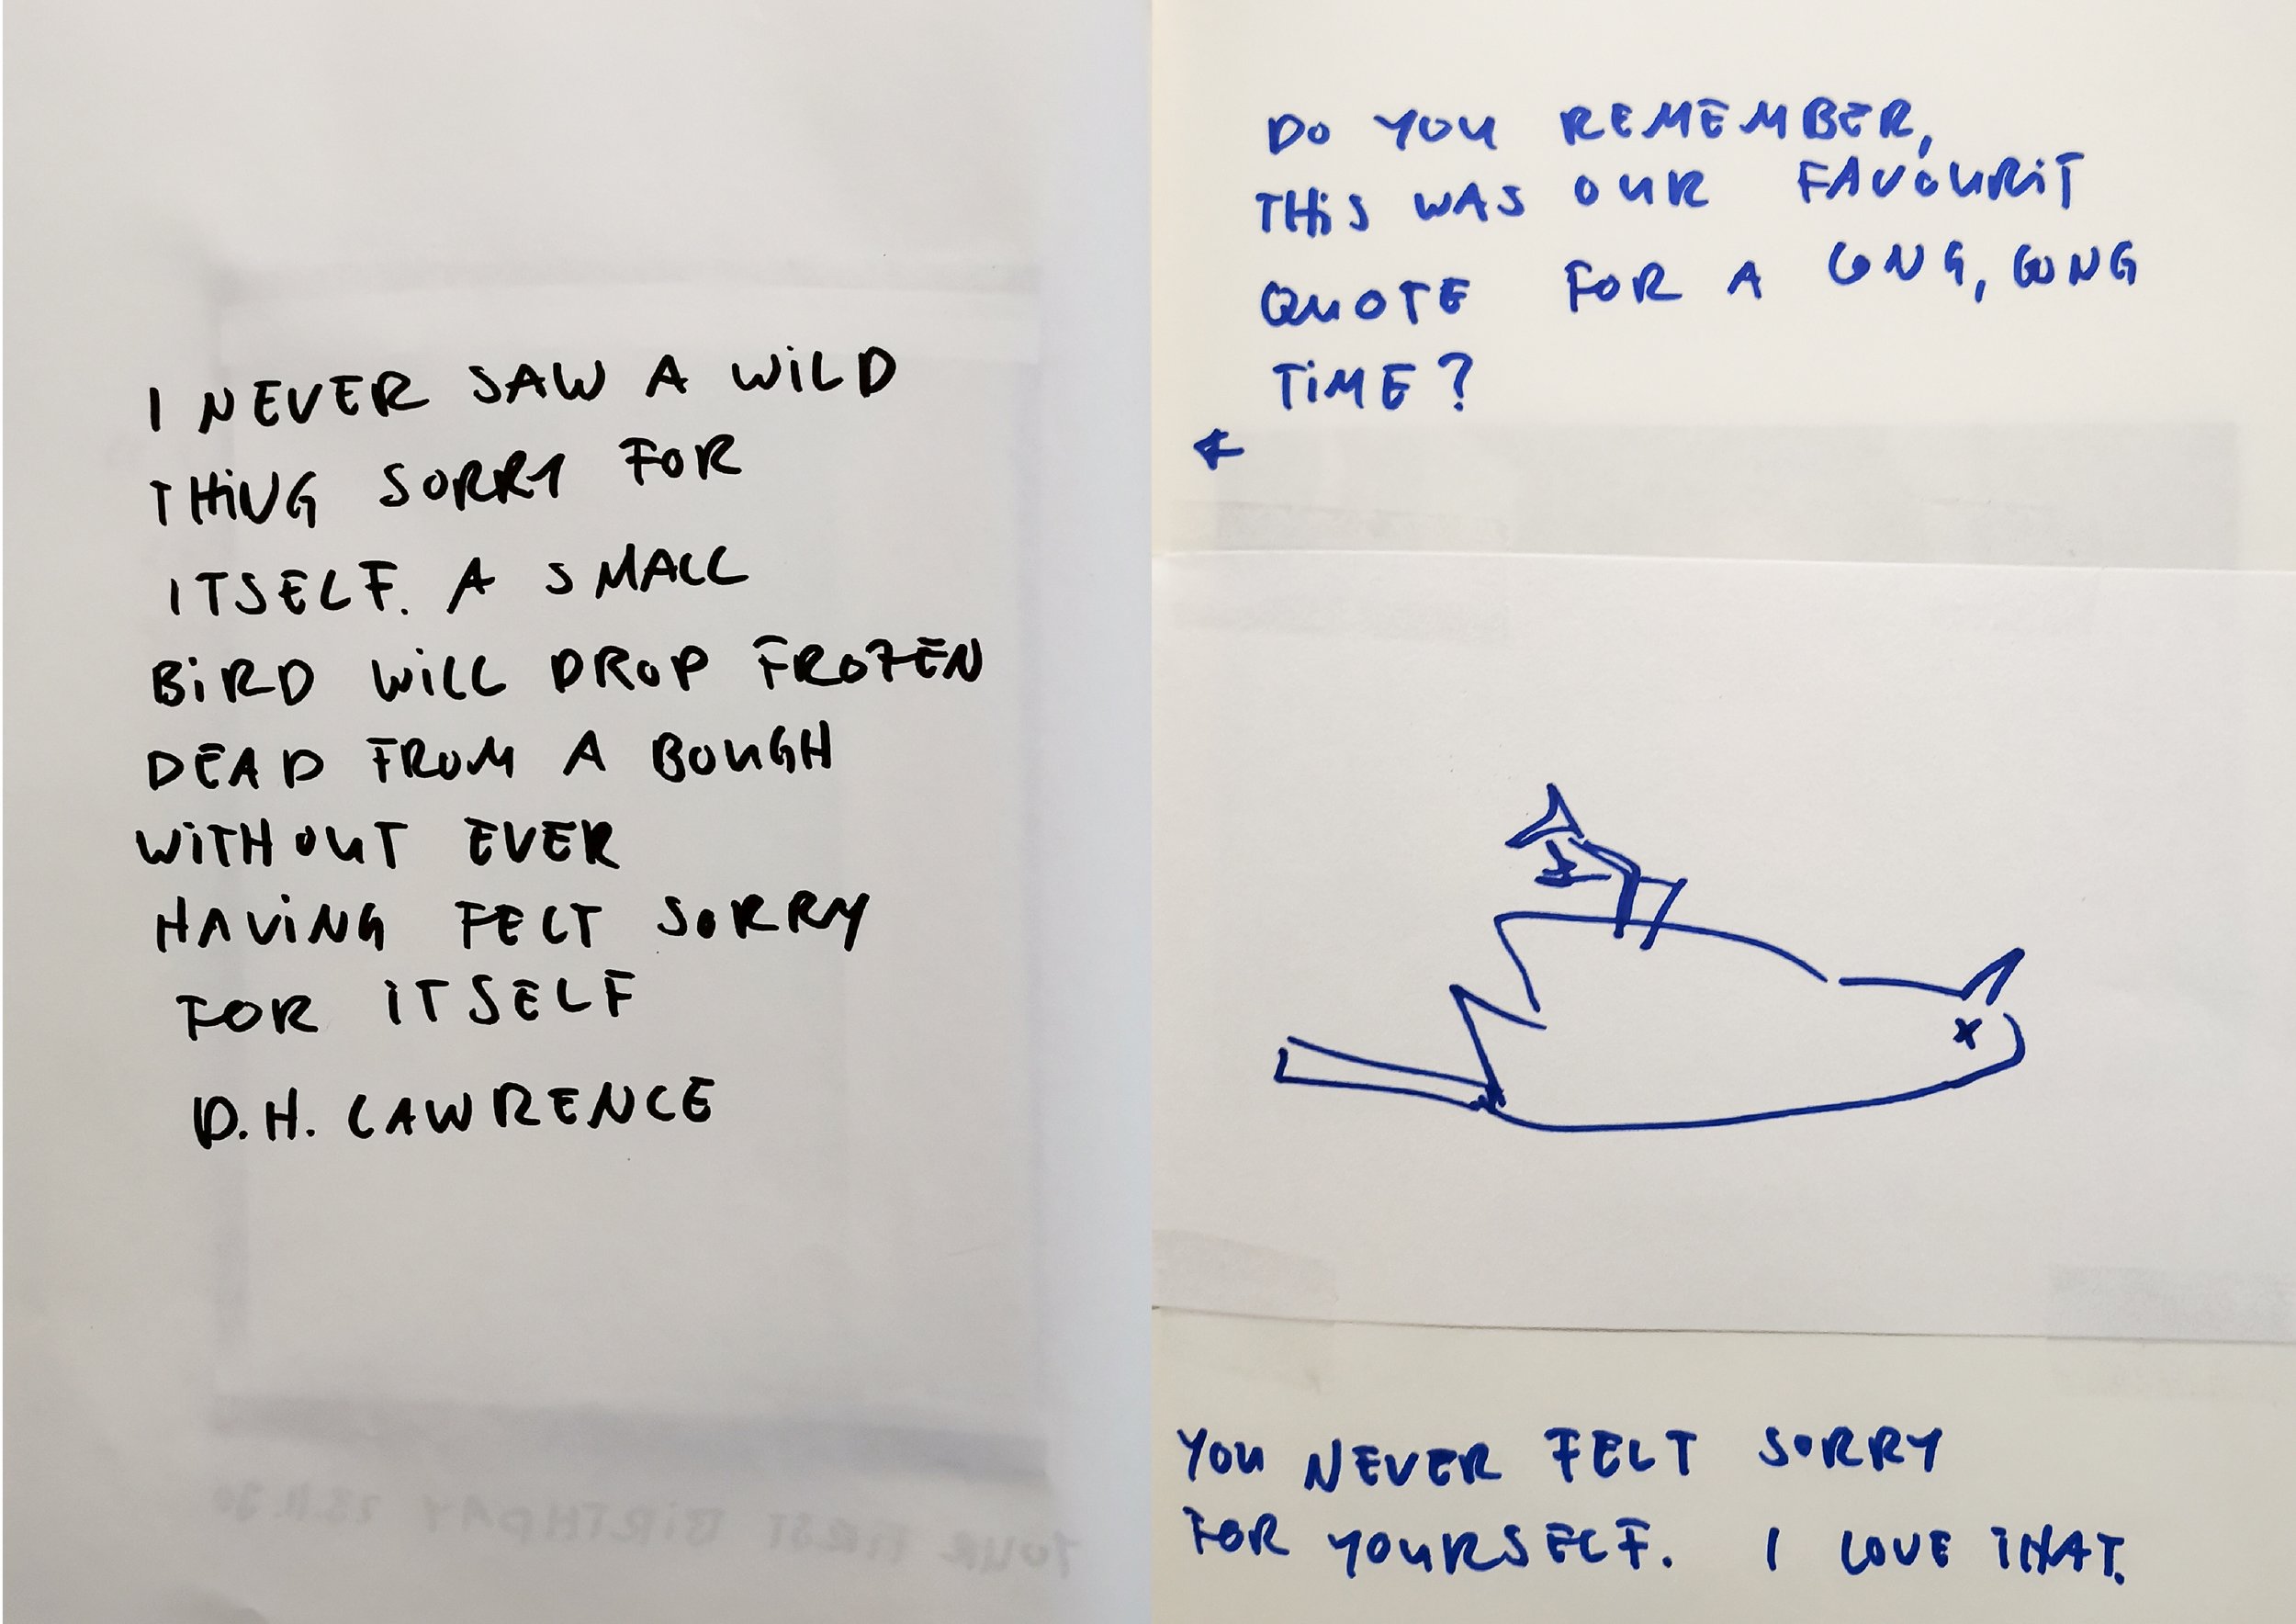 I NEVER SAW A WILD
THING SORRY FOR
ITSELF. A SMALL
BIRD WILL DROP FROZEN
DEAD FROM A BOUGH
WITHOUT EVER
HAVING FELT SORRY
FOR ITSELF
D.H. LAWRENCE
YOUR FIRST BIRTHDAY
DO YOU REMEMBER,
THIS WAS OUR FAVOURIT
QUOTE FOR A LONG, LONG
TIME?
YOU NEVER FELT SORRY
FOR YOURSELF. I LOVE THAT.